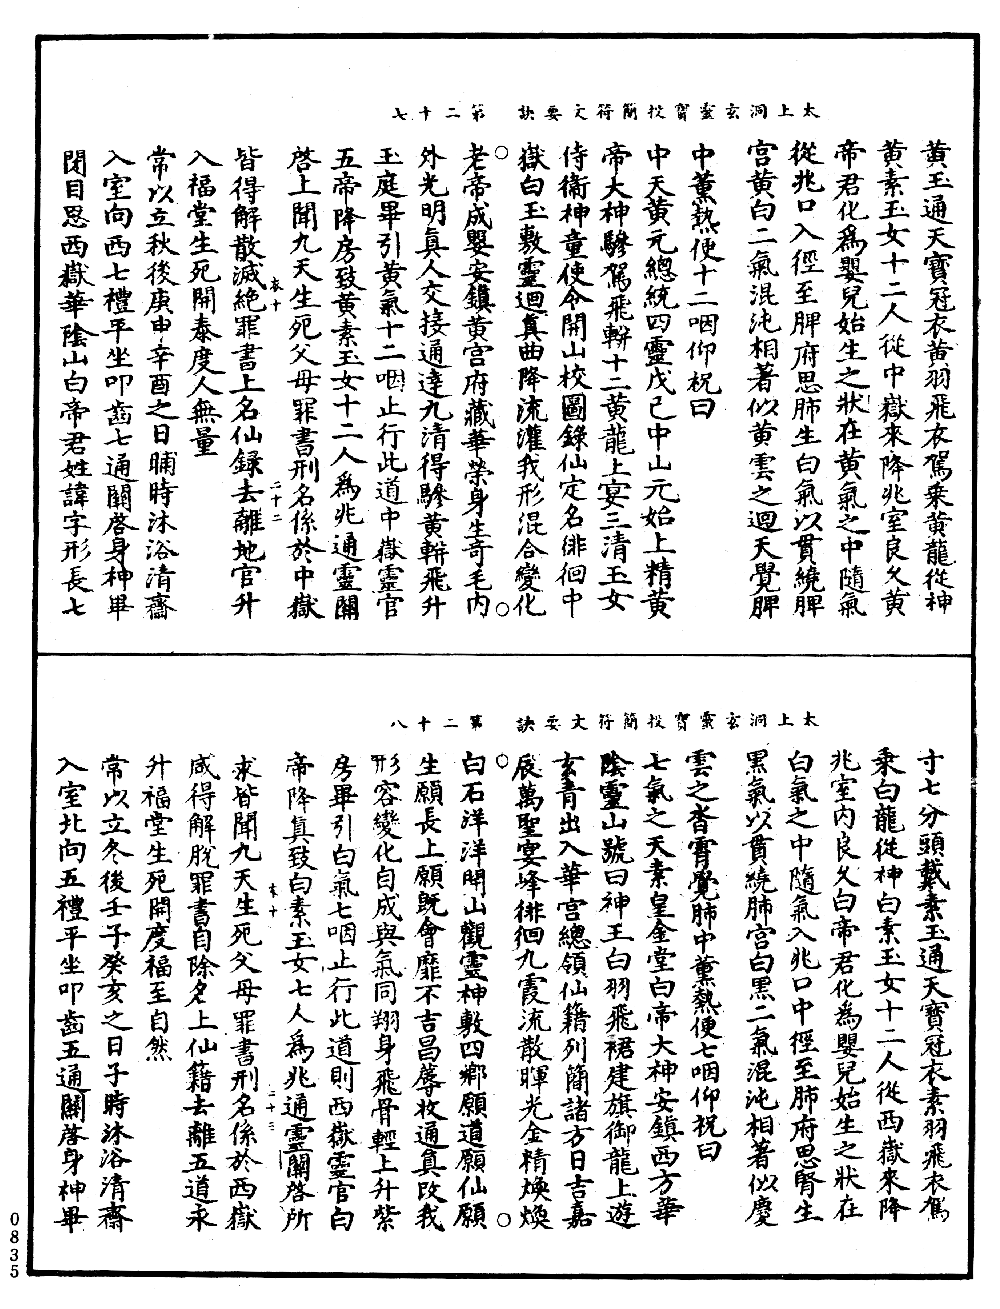 太上洞玄靈寶投簡符文要訣　第二十七
黃玉通天寶冠衣黃羽飛衣駕乘黃龍從神
黃素玉女十二人從中嶽來降兆室良久黃
帝君化爲嬰兒始生之狀在黃氣之中隨氣
從兆口入徑至脾府思肺生白氣以貫繞脾
宮黃白二氣混沌相著似黃雲之迴天覺脾
中薰熱便十二咽仰祝曰
中天黃元總統四靈戊己中山元始上精黃
帝大神驂駕飛軿十二黃龍上宴三清玉女
侍衛神童使令開山校圖錄仙定名徘徊中
嶽白玉敷靈迴真曲降流灌我形混合變化
老帝成嬰安鎮黃宮府藏華榮身生奇毛内
外光明真人交接通達九清得驂黃軿飛升
玉庭畢引黃氣十二咽止行此道中嶽靈官
五帝降房致黃素玉女十二人爲兆通靈關
啓上聞九天生死父母罪書刑名係於中嶽
衣十　二十二
皆得解散滅絕罪書上名仙錄去離地官升
入福堂生死開泰度人無量
常以立秋後庚申辛酉之日晡時沐浴清齋
入室向西七禮平坐叩齒七通關啓身神畢
閉目思西嶽華陰山白帝君姓諱字形長七
太上洞玄靈寶投簡符文要訣　第二十八
寸七分頭戴素玉通天寶冠衣素羽飛衣駕
乘白龍從神白素玉女十二人從西嶽來降
兆室内良久白帝君化爲嬰兒始生之狀在
白氣之中隨氣入兆口中徑至肺府思腎生
黑氣以貫繞肺宮白黑二氣混沌相著似慶
雲之沓霄覺肺中薰熱便七咽仰祝曰
七氣之天素皇金堂白帝大神安鎮西方華
陰靈山號曰神王白羽飛裙建旗御龍上遊
玄青出入華宮總領仙籍列簡諸方日吉嘉
辰萬聖宴峰徘徊九霞流散暉光金精煥煥
白石洋洋開山觀靈神敷四鄉願道願仙願
生願長上願既會靡不吉昌蓐收通真改我
形容變化自成與氣同翔身飛骨輕上升紫
房畢引白氣七咽止行此道則西嶽靈官白
帝降真致白素玉女七人爲兆通靈關啓所
求皆聞九天生死父母罪書刑名係於西嶽
衣十　二十三
咸得解脫罪書自除名上仙籍去離五道永
升福堂生死開度福至自然
常以立冬後壬子癸亥之日子時沐浴清齋
入室北向五禮平坐叩齒五通關啓身神畢
0835